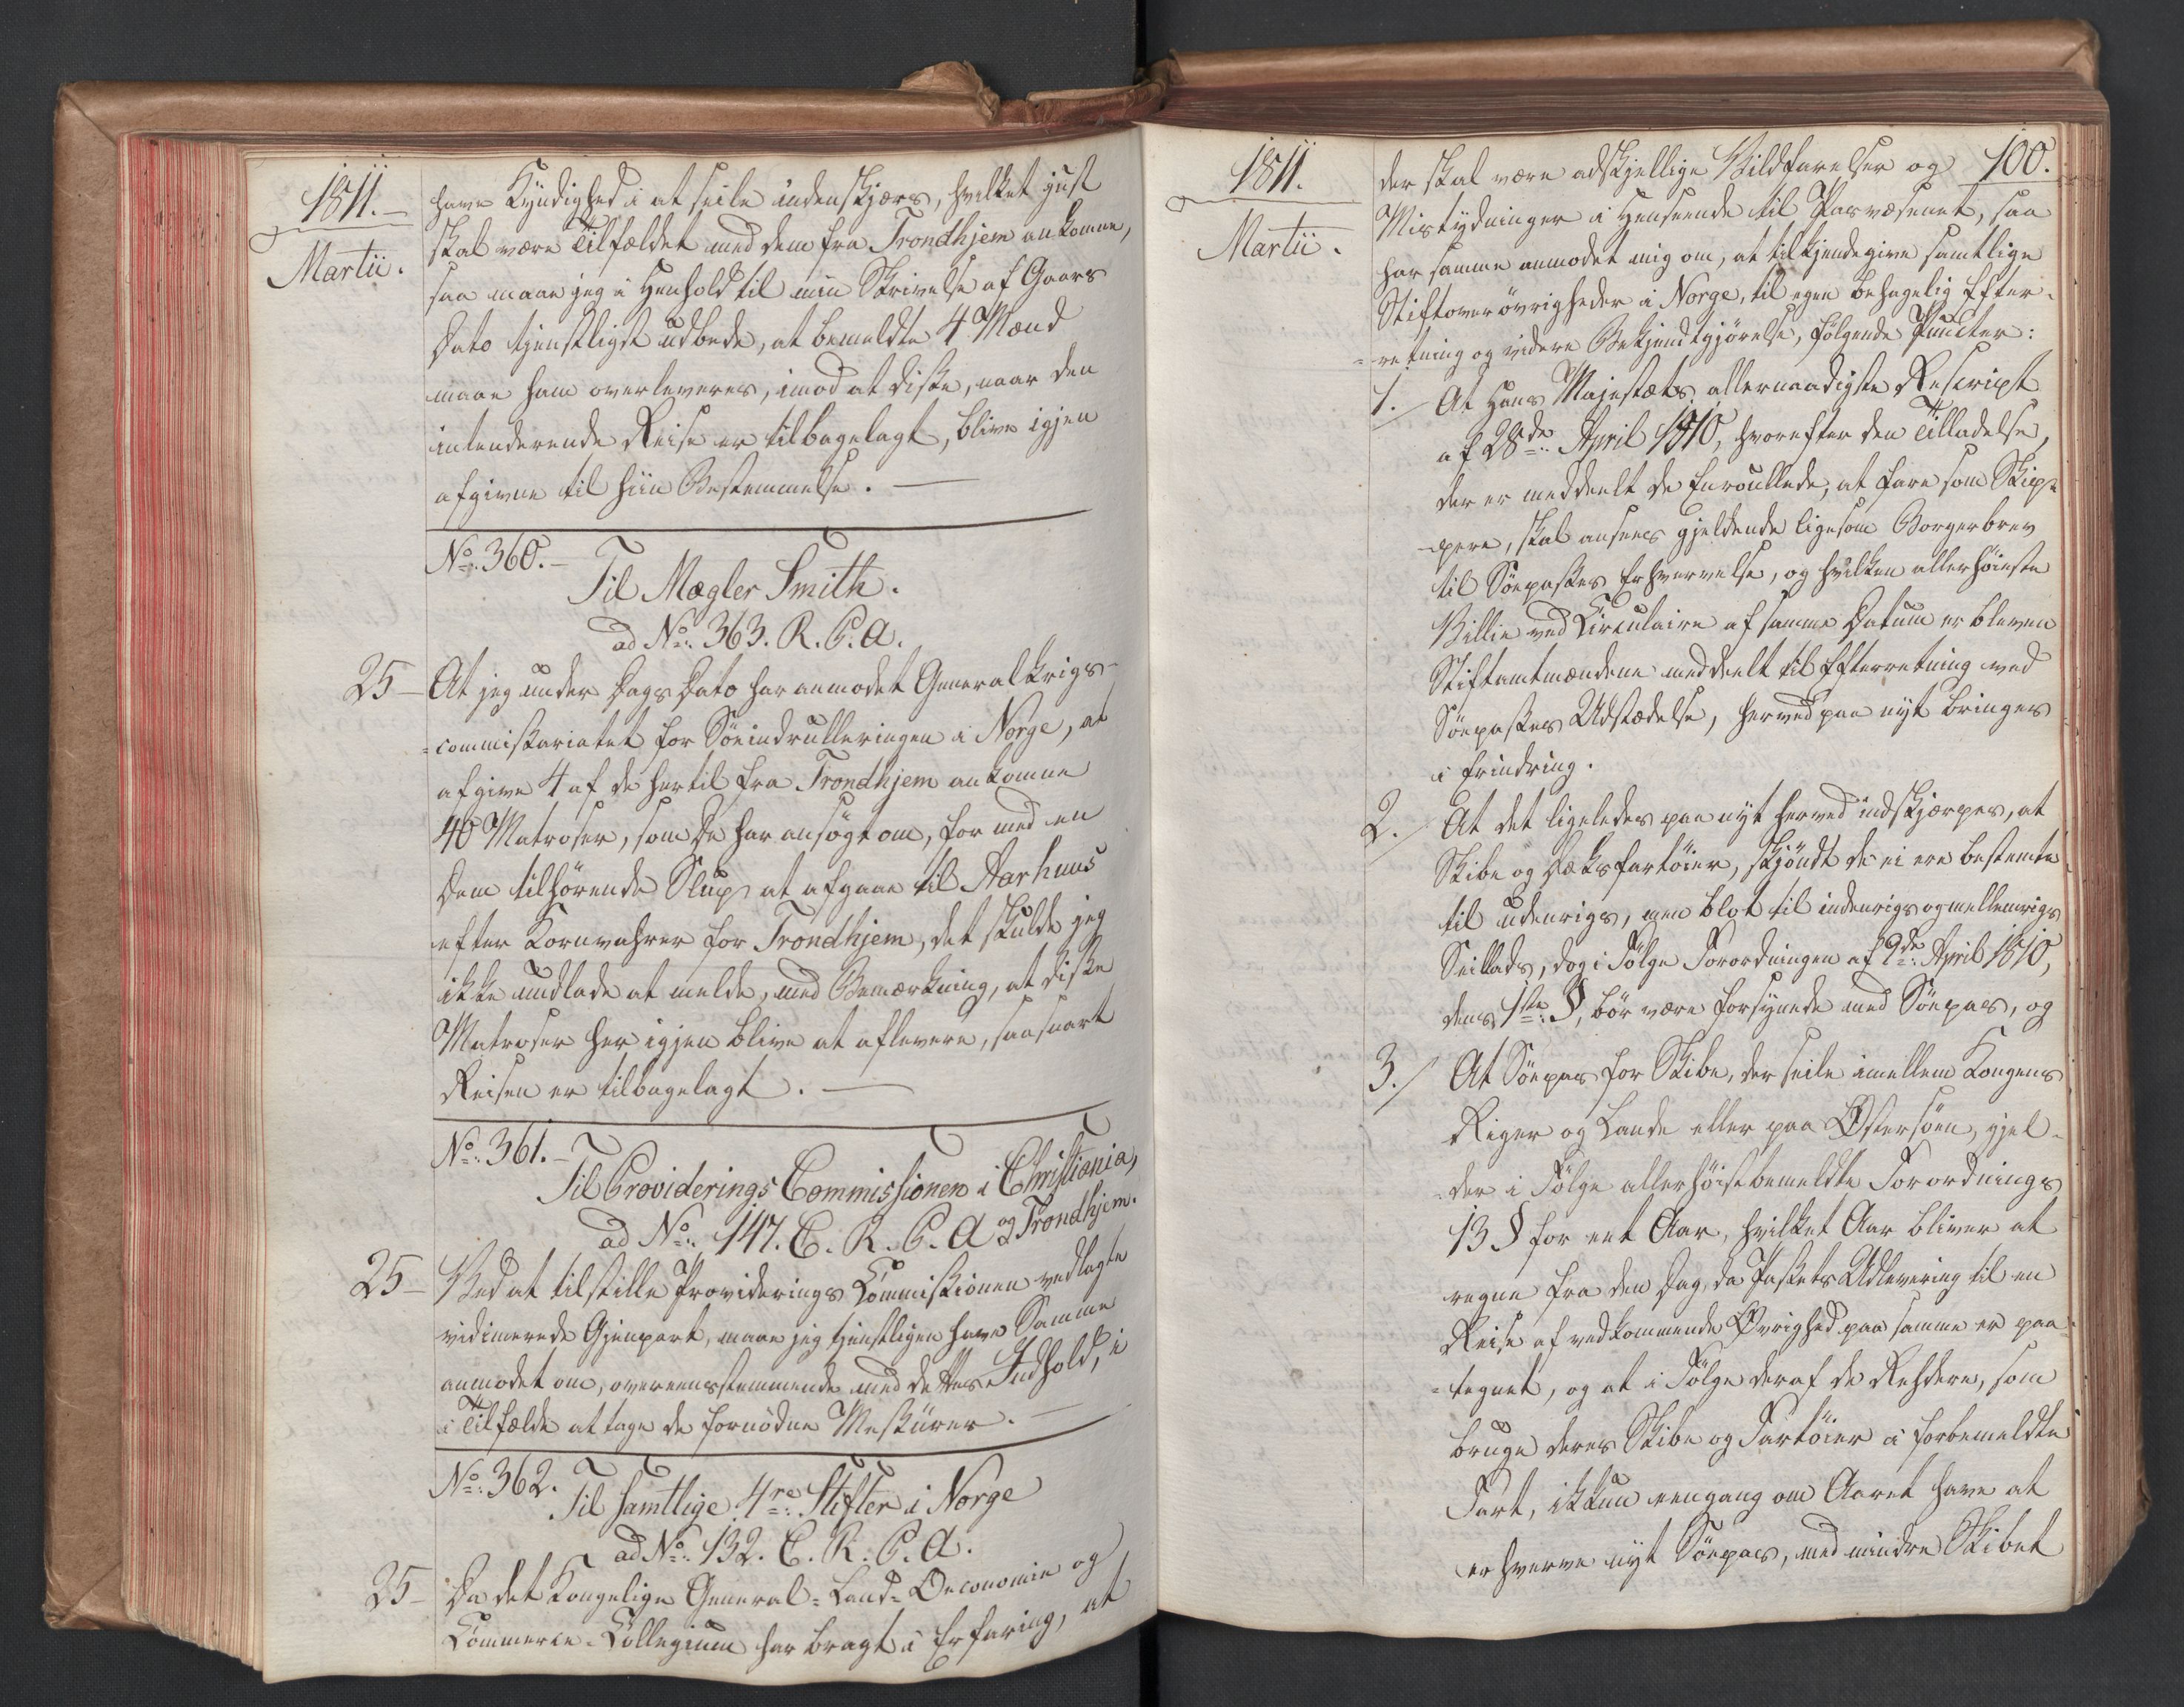 1811.
Martii.
have Kyndighed i at seile indenskjærs, hvilket just
skal være Tilfældet med dem fra Trondhjem ankomne,
saa maae jeg i Henhold til min Skrivelse af Gaars
Dato tjenstligst udbede, at bemeldte 4 Mænd
maae ham overleveres, imod at disse, naar den
intenderende Reise er tilbagelagt, blive igjen
afgivne til hiin Bestemmelse.
No. 360.
Til Mægler Smith.
ad No. 363. R. P. A.
25 At jeg under Dags Dato har anmodet Generalkrigs-
=commissariatet for Söeindrulleringen i Norge, at
afgive 4 af de hertil fra Trondhjem ankomne
40 Matroser, som De har ansögt om, for med en
Dem tilhørende Slup at afgaae til Aarhuus
efter Kornvahrer for Trondhjem, det skulde jeg
ikke undlade at melde, med Bemærkning, at disse
Matroser her igjen blive at aflevere, saasnart
Reisen er tilbagelagt.
No. 361.
Til Providerings Commissionen i Christiania,
ad No. 147. C. R. P. A og Trondhjem.
25 Ved at tilstille Providerings Commissionen vedlagte
vidimerede Gjenpart, maae jeg tjenstligen have Samme
anmodet om, overeensstemmende med dettes Indhold, i
i Tilfælde at tage de fornödne Messürer.
No. 362.
Til samtlige 4re Stifter i Norge
ad No. 132. C. R. P. A.
25 Da det Kongelige General-Land-Oeconomie og
Commerce-Collegium har bragt i Erfaring, at
100.
1811.
Martii.
der skal være adskjellige Vildfarelser og
Mistydninger i Henseende til Pasvæsenet, saa
har samme anmodet mig om, at tilkjendegive samtlige
Stiftsoverövrigheder i Norge, til egen behagelig Efter-
=retning og videre Bekjendtgjörelse, følgende Puncter:
1. At Hans Majestæts allernaadigste Rescript
af 28de April 1810, hvorefter den Tilladelse,
der er meddeelt de Enroullede, at fare som Skip-
-pere, skal ansees gjeldende ligesom Borgerbrev
til Söepasses Erhvervelse, og hvilken allerhöieste
Villie ved Circulaire af samme Datum er bleven
Stiftamtmændene meddeelt til Efterretning ved
Söepasses Udstædelse, herved paa nyt bringes
i Erindring.
2. At det ligeledes paa nyt herved indskjærpes, at
Skibe og Dæksfartöier, skjöndt de ei ere bestemte
til udenrigs, men blot til indenrigs og mellemrigs
Seillads, dog i Fölge Forordningen af 9de April 1810,
dens 1ste §, bör være forsynede med Söepas, og
3. At Söepas for Skibe, der seile imellem Kongens
Riger og Lande eller paa Østersöen, gjel-
=der i Fölge allerhöistbemeldte Forordnings
13 § for eet Aar, hvilket Aar bliver at
regne fra den Dag, da Passets Udlevering til en
Reise af vedkommende Øvrighed paa samme er paa-
=tegnet, og at i Fölge deraf de Rehdere, som
bruge deres Skibe og Fartöier i forbemeldte
Fart, ikkun eengang om Aaret have at
erhverve nyt Söepas, med mindre Skibet